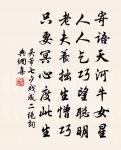 寄语天河牛女星
人人乞巧望聪明
老夫养拙生憎巧
只要冥心度此生
吴芾七夕戏成二绝词
典网集